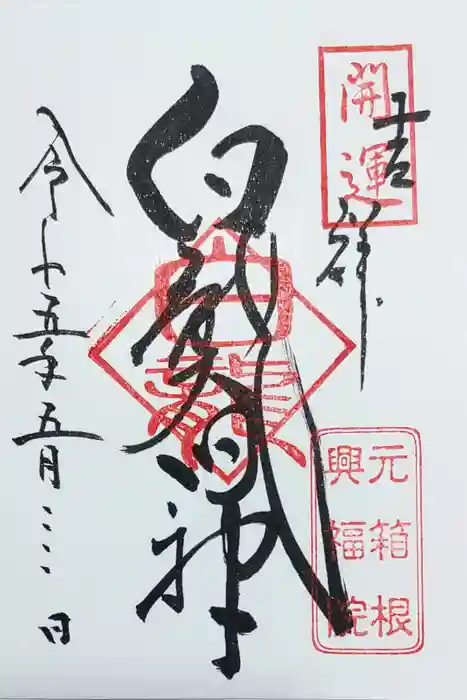 開運
吉祥
元箱根
興福院
白龍神
令和五年五月三日